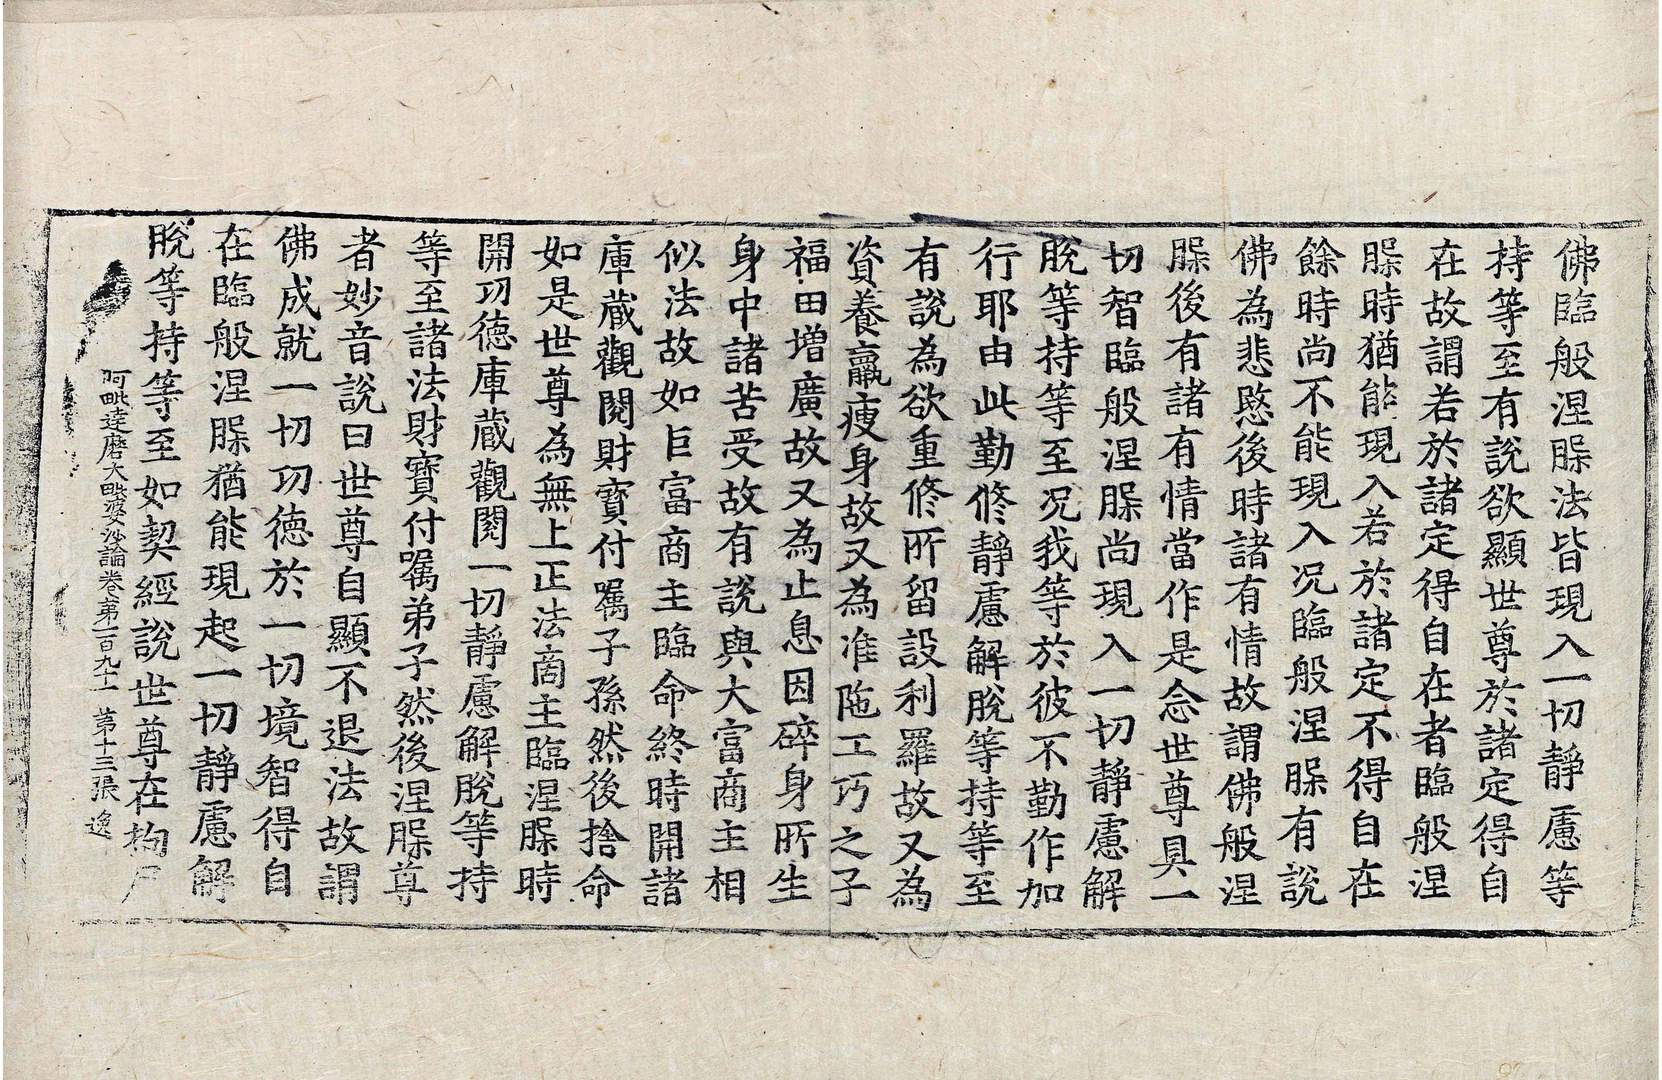 佛臨般涅槃法皆現入一切靜慮等
持等至有說欲顯世尊於諸定得自
在故謂若於諸定得自在者臨般涅
槃時猶能現入若於諸定不得自在
餘時尚不能現入况臨般涅槃有說
佛為悲愍後時諸有情故謂佛般涅
槃後有諸有情當作是念世尊具一
切智臨般涅槃尚現入一切靜慮解
脫等持等至况我等於彼不勤作加
行耶由此勤修靜慮解脫等持等至
有說為欲重修所留設利羅故又為
資養羸瘦身故又為准陁工巧之子
福田增廣故又為止息因碎身所生
身中諸苦受故有說與大富商主相
似法故如巨富商主臨命終時開諸
庫藏觀閱財寶付囑子孫然後捨命
如是世尊為無上正法商主臨涅槃時
開功德庫藏觀閱一切靜慮解脫等持
等至諸法財寶付囑弟子然後涅槃尊
者妙音說曰世尊自顯不退法故謂
佛成就一切功德於一切境智得自
在臨般涅槃猶能現起一切靜慮解
脫等持等至如契經說世尊在拘尸
阿毗達磨大毗婆沙論卷第一百九十一 第十三張 逸